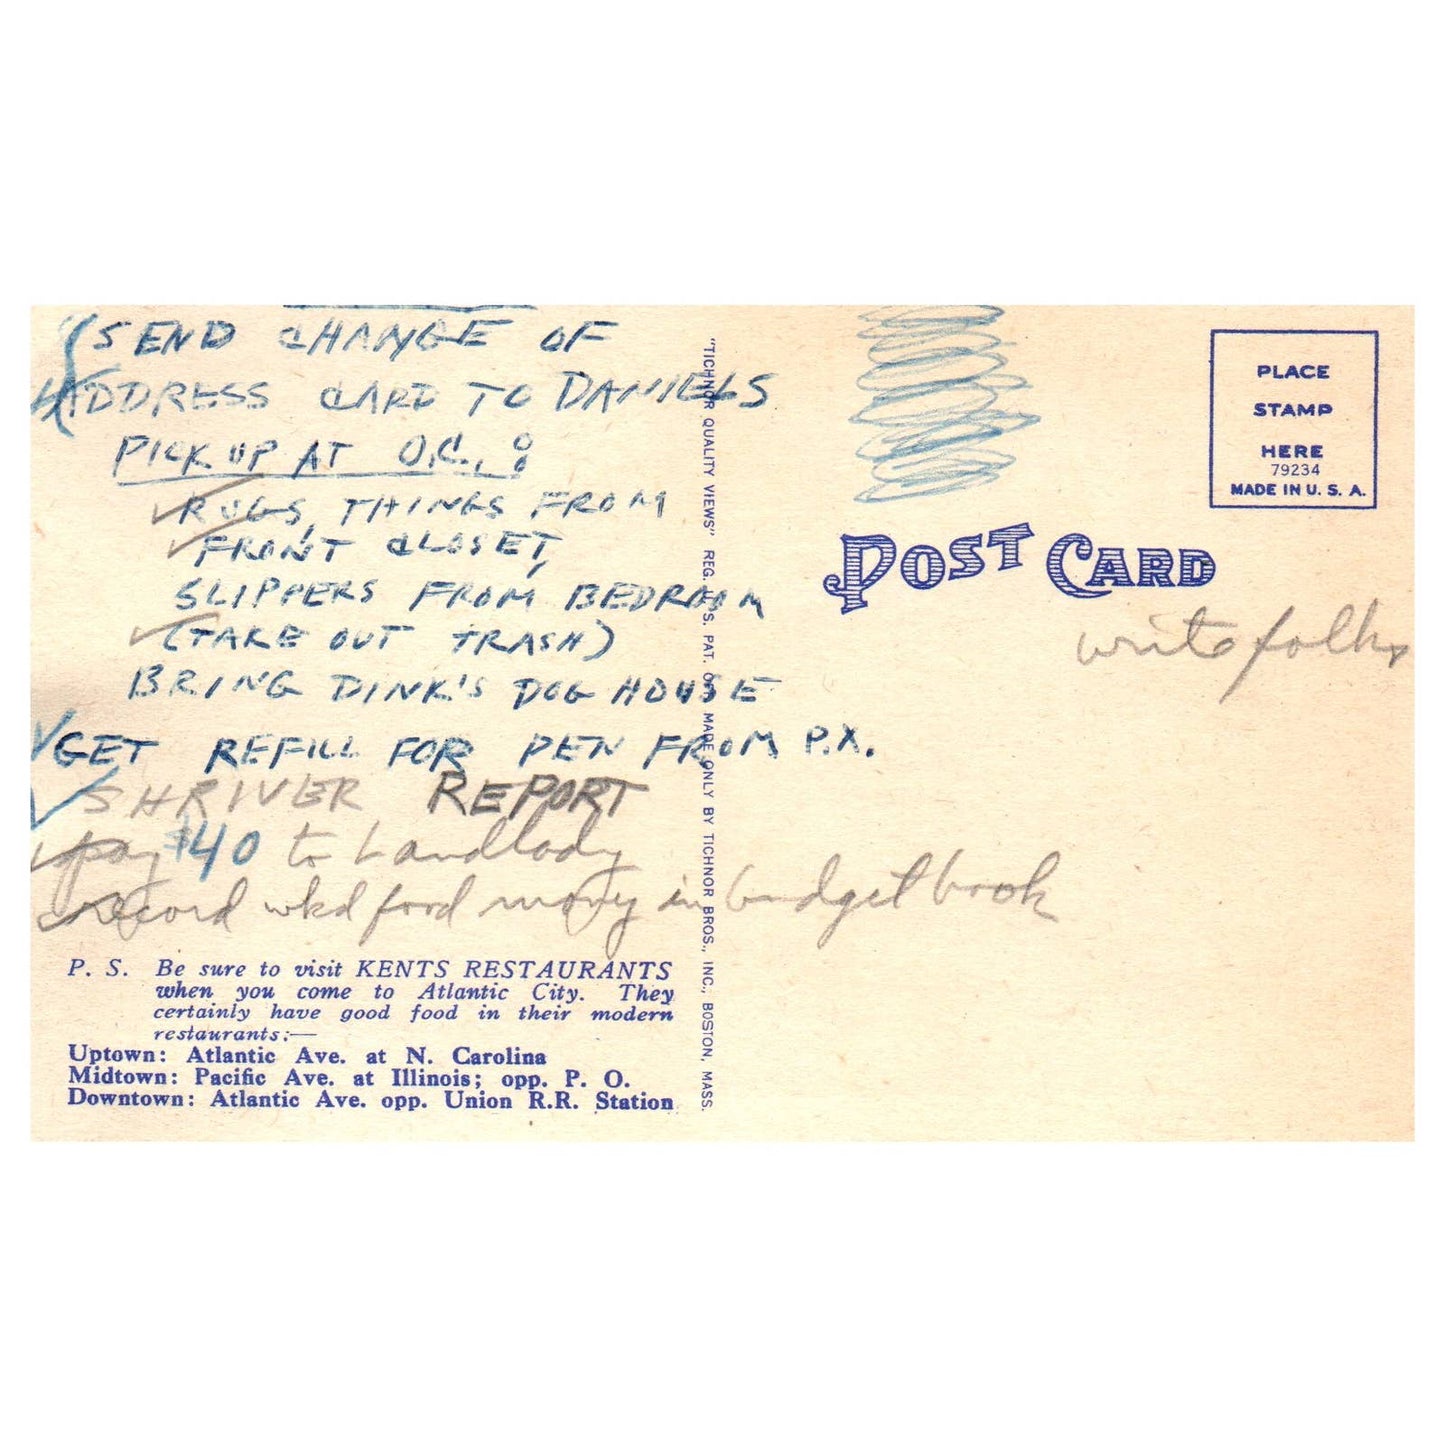 SEND CHANGE OF
ADDRESS CARD TO DANIELS
PICK UP AT O.C.:
RUGS, THINGS FROM
FRONT CLOSET,
SLIPPERS FROM BEDROOM
(TAKE OUT TRASH)
BRING DINK'S DOG HOUSE
GET REFILL FOR PEN FROM P.X.
SHRIVER REPORT
pay $40 to Landlady
record wkd food money in budget book
P. S. Be sure to visit KENTS RESTAURANTS
when you come to Atlantic City. They
certainly have good food in their modern
restaurants:—
Uptown: Atlantic Ave. at N. Carolina
Midtown: Pacific Ave. at Illinois; opp. P. O.
Downtown: Atlantic Ave. opp. Union R.R. Station
"TICHNOR QUALITY VIEWS" REG. U.S. PAT. OFF. MADE ONLY BY TICHNOR BROS., INC., BOSTON, MASS.
PLACE
STAMP
HERE
79234
MADE IN U. S. A.
POST CARD
write folks